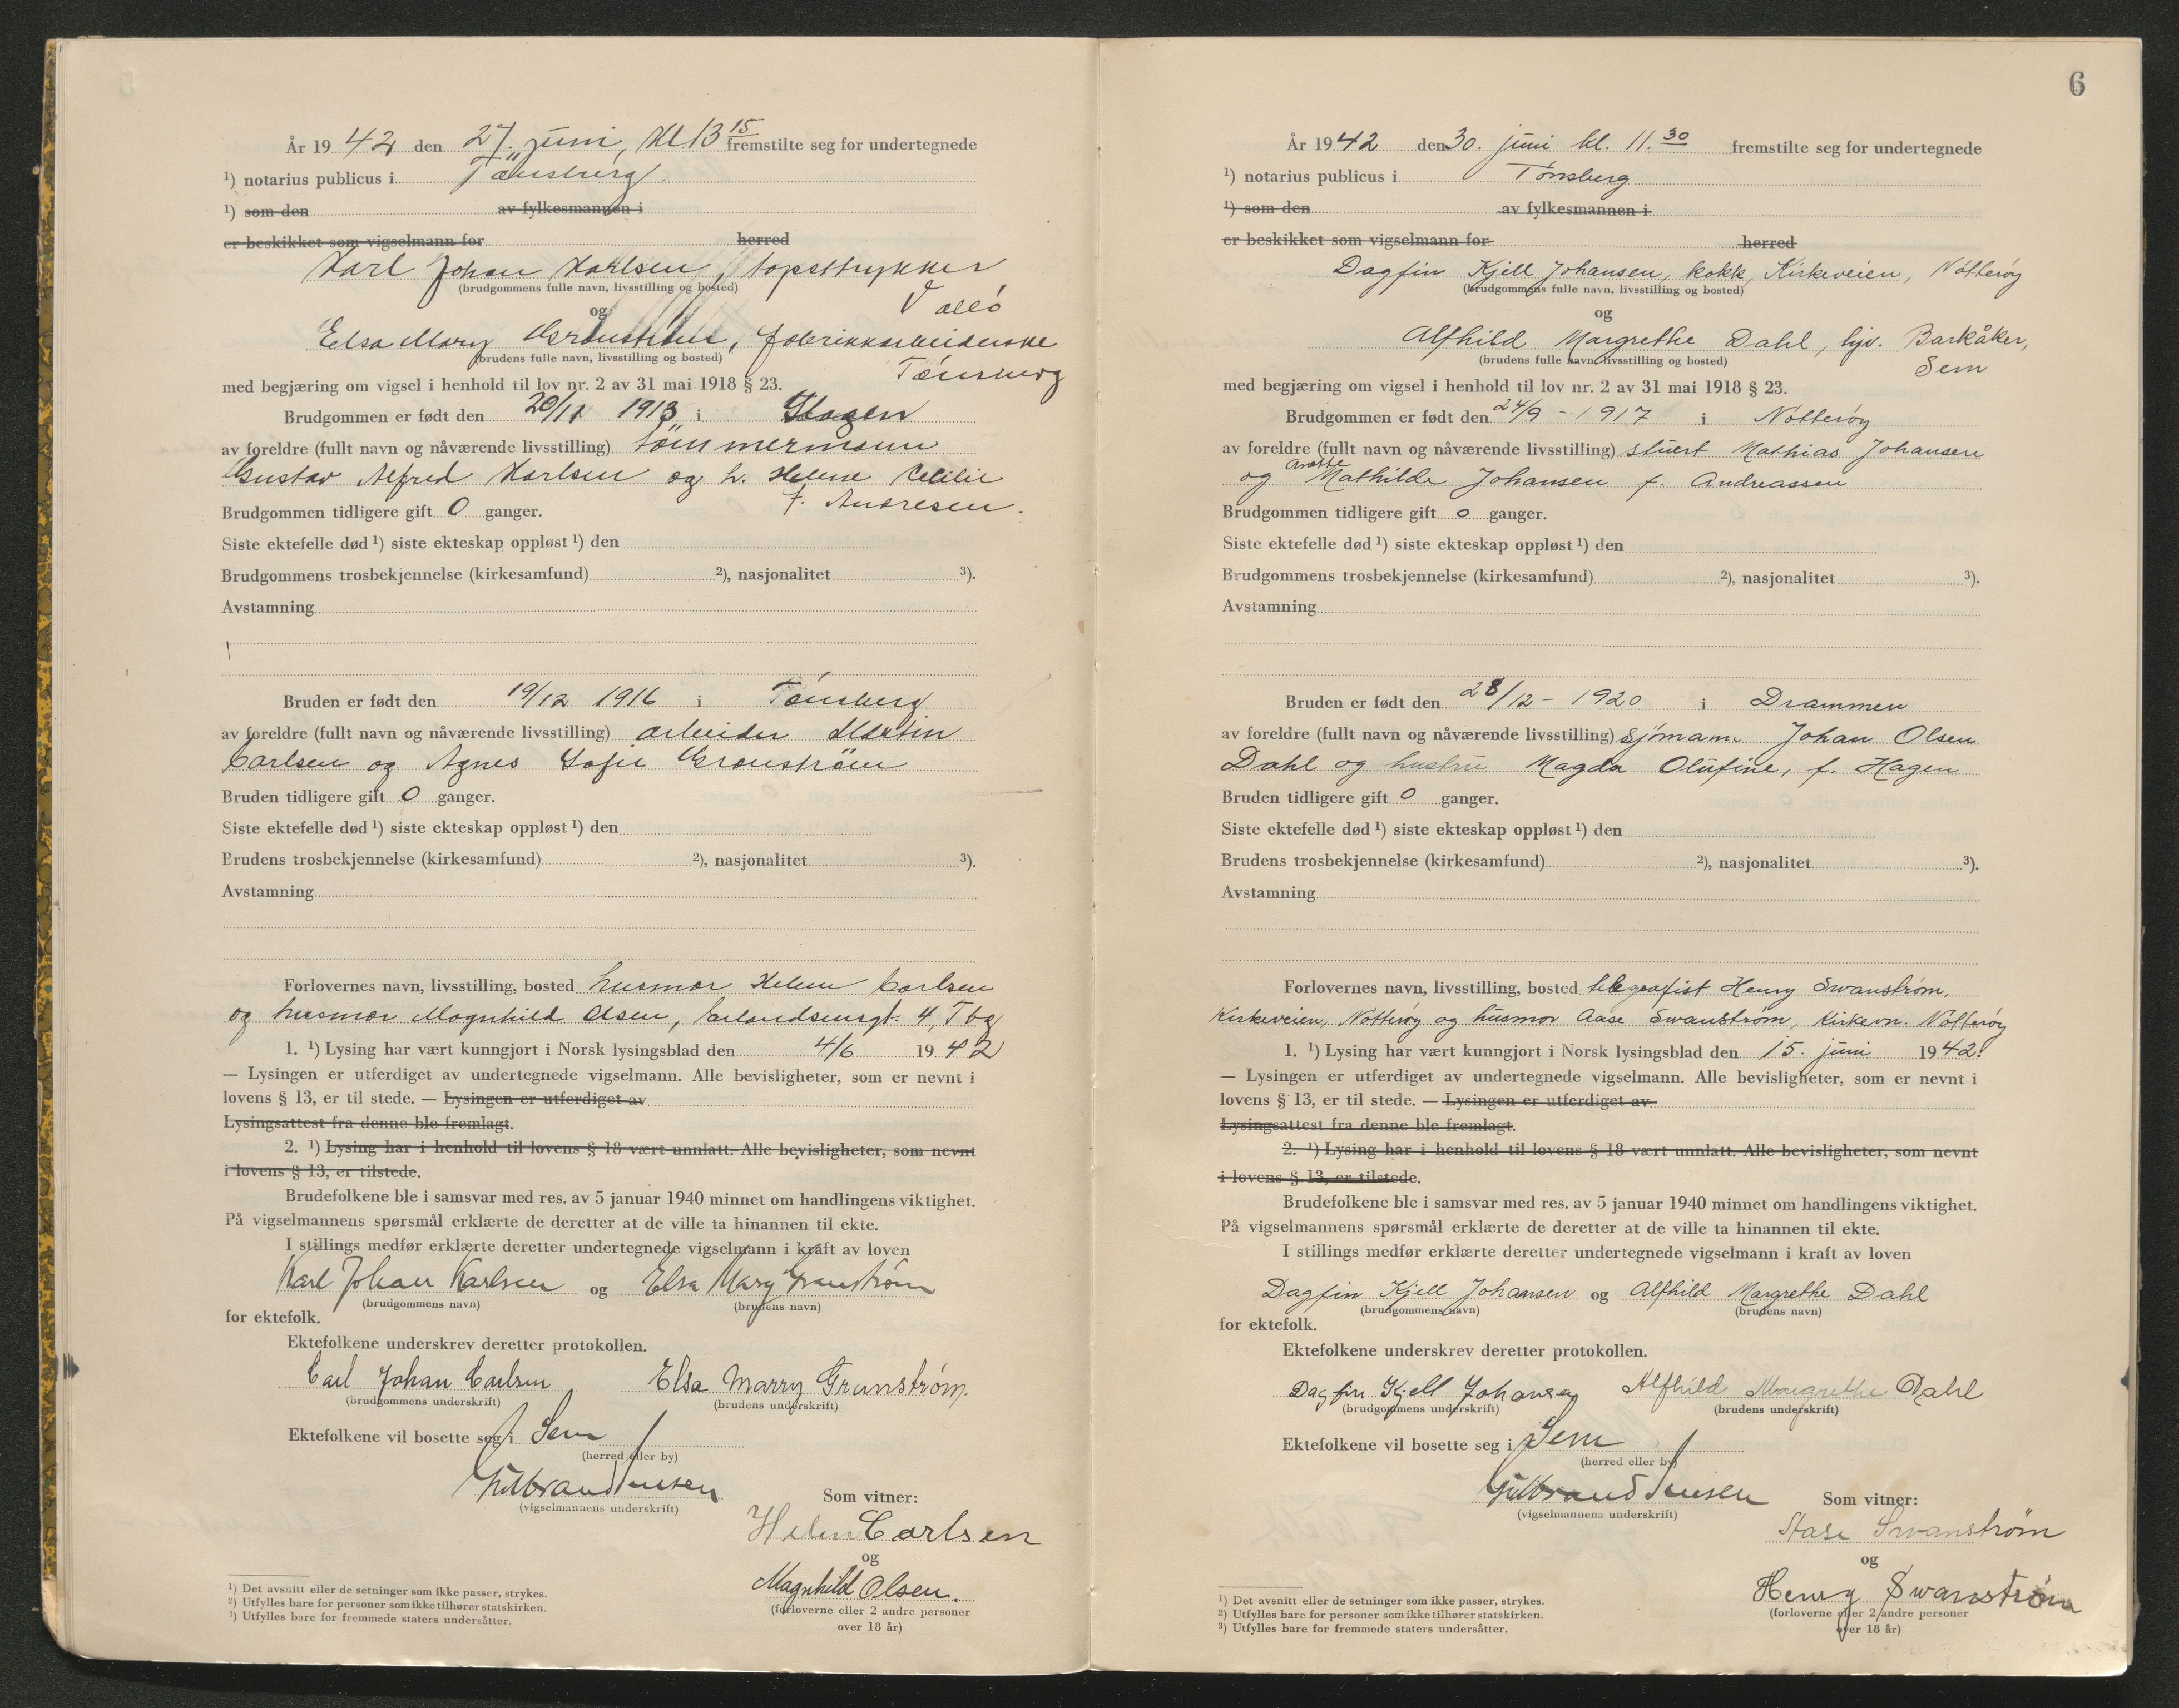 År 1942 den 27. juni, kl 13 15 fremstilte seg for undertegnede
¹) notarius publicus i Tønsberg.
¹) som den av fylkesmannen i
er beskikket som vigselmann for herred
Karl Johan Karlsen, tapettrykker
(brudgommens fulle navn, livsstilling og bosted)
Valló
og
Elsa Mary Granstrøm, fabrikkarbeiderske
(brudens fulle navn, livsstilling og bosted)
Tønsberg
med begjæring om vigsel i henhold til lov nr. 2 av 31 mai 1918 § 23.
Brudgommen er født den 20/11 1913 i Slagen
av foreldre (fullt navn og nåværende livsstilling) tömmermann
Gustav Alfred Karlsen og h. Helene Cecilie
f. Andresen.
Brudgommen tidligere gift 0 ganger.
Siste ektefelle død ¹) siste ekteskap oppløst ¹) den
Brudgommens trosbekjennelse (kirkesamfund) ²), nasjonalitet ³).
Avstamning
Bruden er født den 19/12 1916 i Tønsberg
av foreldre (fullt navn og nåværende livsstilling) arbeider Martin
Carlsen og Agnes Sofie Granström
Bruden tidligere gift 0 ganger.
Siste ektefelle død ¹) siste ekteskap oppløst ¹) den
Brudens trosbekjennelse (kirkesamfund) ²), nasjonalitet ³).
Avstamning
Forlovernes navn, livsstilling, bosted husmor Helene Carlsen
og husmor Magnhild Olsen, Erlandsensgt. 4, Tbg
1. ¹) Lysing har vært kunngjort i Norsk lysingsblad den 4/6 1942
— Lysingen er utferdiget av undertegnede vigselmann. Alle bevisligheter, som er nevnt i
lovens § 13, er til stede. — Lysingen er utferdiget av
Lysingsattest fra denne ble fremlagt.
2. ¹) Lysing har i henhold til lovens § 18 vært unnlatt. Alle bevisligheter, som nevnt
i lovens § 13, er tilstede.
Brudefolkene ble i samsvar med res. av 5 januar 1940 minnet om handlingens viktighet.
På vigselmannens spørsmål erklærte de deretter at de ville ta hinannen til ekte.
I stillings medfør erklærte deretter undertegnede vigselmann i kraft av loven
Karl Johan Karlsen og Elsa Mary Granstrøm
(brudgommens navn) (brudens navn)
for ektefolk.
Ektefolkene underskrev deretter protokollen.
Carl Johan Carlsen Elsa Marry Granstrøm.
(brudgommens underskrift) (brudens underskrift)
Ektefolkene vil bosette seg i Sem
(herred eller by)
Gulbrand Jensen
(vigselmannens underskrift)
Som vitner:
Helen Carlsen
og
Magnhild Olsen.
(forloverne eller 2 andre personer
over 18 år)
¹) Det avsnitt eller de setninger som ikke passer, strykes.
²) Utfylles bare for personer som ikke tilhører statskirken.
³) Utfylles bare for fremmede staters undersåtter.
6
År 1942 den 30. juni kl. 11.30 fremstilte seg for undertegnede
¹) notarius publicus i Tønsberg
¹) som den av fylkesmannen i
er beskikket som vigselmann for herred
Dagfin Kjell Johansen, kokk, Kirkeveien, Nötteröy
(brudgommens fulle navn, livsstilling og bosted)
og
Alfhild Margrethe Dahl, hjv. Barkåker,
(brudens fulle navn, livsstilling og bosted)
Sem
med begjæring om vigsel i henhold til lov nr. 2 av 31 mai 1918 § 23.
Brudgommen er født den 24/9 - 1917 i Nötteröy
av foreldre (fullt navn og nåværende livsstilling) stuert Mathias Johansen
og Anette Mathilde Johansen f. Andreassen
Brudgommen tidligere gift 0 ganger.
Siste ektefelle død ¹) siste ekteskap oppløst ¹) den
Brudgommens trosbekjennelse (kirkesamfund) ²), nasjonalitet ³).
Avstamning
Bruden er født den 28/12 - 1920 i Drammen
av foreldre (fullt navn og nåværende livsstilling) sjömann Johan Olsen
Dahl og hustru Magda Olufine, f. Hagen
Bruden tidligere gift 0 ganger.
Siste ektefelle død ¹) siste ekteskap oppløst ¹) den
Brudens trosbekjennelse (kirkesamfund) ²), nasjonalitet ³).
Avstamning
Forlovernes navn, livsstilling, bosted telegrafist Henry Swanstrøm,
Kirkeveien, Nötteröy og husmor Aase Swanstrøm, Kirkevn. Nötteröy
1. ¹) Lysing har vært kunngjort i Norsk lysingsblad den 15. juni 1942.
— Lysingen er utferdiget av undertegnede vigselmann. Alle bevisligheter, som er nevnt i
lovens § 13, er til stede. — Lysingen er utferdiget av
Lysingsattest fra denne ble fremlagt.
2. ¹) Lysing har i henhold til lovens § 18 vært unnlatt. Alle bevisligheter, som nevnt
i lovens § 13, er tilstede.
Brudefolkene ble i samsvar med res. av 5 januar 1940 minnet om handlingens viktighet.
På vigselmannens spørsmål erklærte de deretter at de ville ta hinannen til ekte.
I stillings medfør erklærte deretter undertegnede vigselmann i kraft av loven
Dagfin Kjell Johansen og Alfhild Margrethe Dahl
(brudgommens navn) (brudens navn)
for ektefolk.
Ektefolkene underskrev deretter protokollen.
Dagfin Kjell Johansen Alfhild Margrethe Dahl
(brudgommens underskrift) (brudens underskrift)
Ektefolkene vil bosette seg i Sem
(herred eller by)
Gulbrand Jensen
(vigselmannens underskrift)
Som vitner:
Aase Swanstrøm
og
Henry Swanstrøm
(forloverne eller 2 andre personer
over 18 år)
¹) Det avsnitt eller de setninger som ikke passer, strykes.
²) Utfylles bare for personer som ikke tilhører statskirken.
³) Utfylles bare for fremmede staters undersåtter.